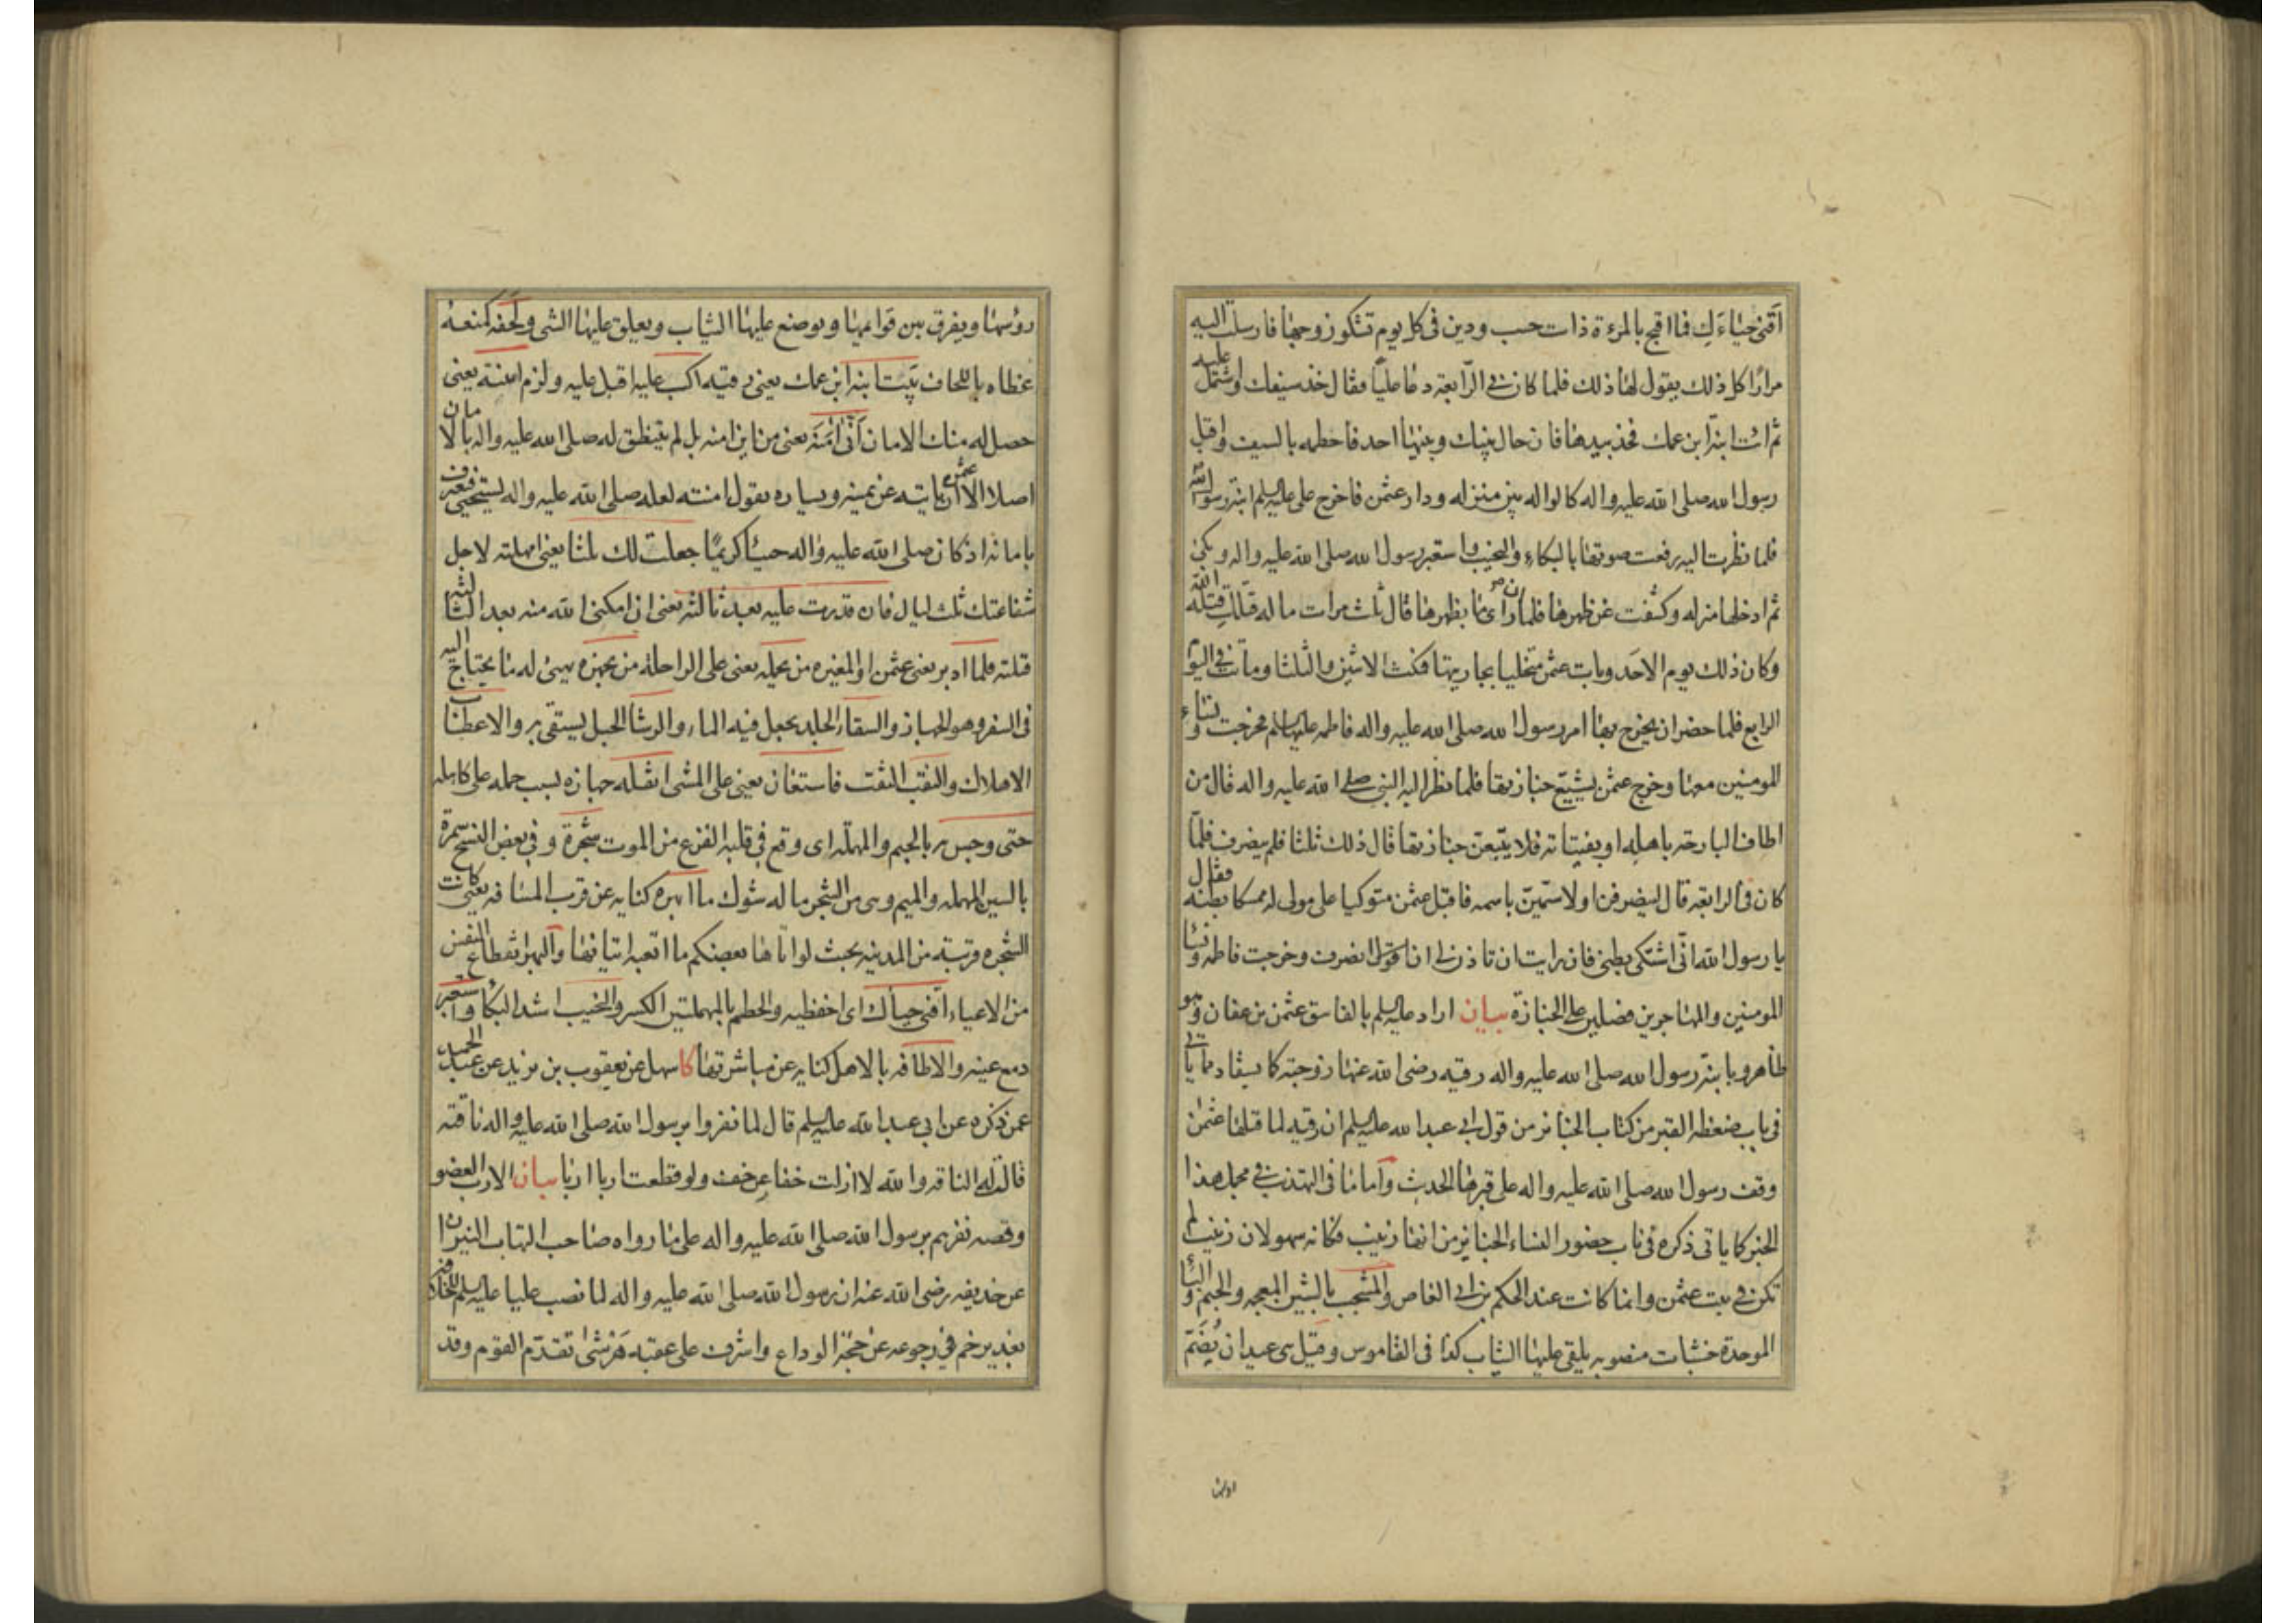 أقنى حياءك فما اقبح بالمرءة ذات حسب ودين فى كل يوم تشكو زوجها فارسلت اليه
مرارا كل ذلك يقول لها ذلك فلما كان فى الرابعة دعا عليا فقال خذ سيفك واشتمل عليه
ثم ائت ابنة ابن عمك فخذ بيدها فان حال بينك وبينها احد فاحطمه بالسيف واقبل
رسول الله صلى الله عليه واله كالواله من منزله ودار عثمن فاخرج على عليه السلم ابنة رسول الله
فلما نظرت اليه رفعت صوتها بالبكاء والنحيب واستعبر رسول الله صلى الله عليه واله وبكى
ثم ادخلها منزله وكشفت عن ظهرها فلما ان راى ما بظهرها قال ثلث مرات ما له قتلك قتله الله
وكان ذلك يوم الاحد وبات عثمن متخليا بجاريتها فمكث الاثنين والثلثا وماتت فى اليوم
الرابع فلما حضر ان يخرج بها امر رسول الله صلى الله عليه واله فاطمه عليها السلم فخرجت ونساء
المومنين معها وخرج عثمن يشيع جنازتها فلما نظر اليه النبى صلى الله عليه واله قال من
اطاف البارحة باهله او بفتاته فلا يتبعن جنازتها قال ذلك ثلثا فلم ينصرف فلما
كان فى الرابعة قال لينصرفن او لاسمين باسمه فاقبل عثمن متوكيا على مولى له ممسكا ببطنه فقال
يا رسول الله انى اشتكى بطنى فان رايت ان تاذن لى ان انصرف قال انصرف وخرجت فاطمه ونسا
المومنين والمهاجرين فصلين على الجنازة بيان اراد عليه السلم بالفاسق عثمن بن عفان وهو
ظاهر وبابنة رسول الله صلى الله عليه واله رقيه رضى الله عنها زوجته كا يستفاد مما ياتى
فى باب ضغطه القبر من كتاب الجنائز من قول ابى عبد الله عليه السلم ان رقيه لما قتلها عثمن
وقف رسول الله صلى الله عليه واله على قبرها الحديث واما ما فى التهذيب فى مجمل هذا
الخبر كا ياتى ذكره فى باب حضور النساء الجنائز من انها زينب فكانه سهو لان زينب لم
تكن فى بيت عثمن وانما كانت عند الحكم بن ابى العاص والمشجب بالشين المعجمه والجيم والبا
الموحدة خشبات منصوبه يلقى عليها الثياب كذا فى القاموس وقيل هى عيدان يضم
رؤسها ويفرق بين قوائمها ويوضع عليها الثياب ويعلق عليها الشى ولحفه كمنعه
غطاه باللحاف بيت ابنة ابن عمك يعنى رقيه اكب عليه اقبل عليه ولزم امنته يعنى
حصل له منك الامان أنى امنه يعنى من اين امنه بل لم يتنطق له صلى الله عليه واله بالامان
اصلا الا ان عثمن ياتيه عن يمينه ويساره يقول امنته لعله صلى الله عليه واله يستحيى فيعترف
بامانه اذ كان صلى الله عليه واله حييا كريما جعلت لك ثلثا يعنى امهلته لاجل
شفاعتك ثلث ليال فان قدرت عليه بعد ثالثه يعنى ان امكننى الله منه بعد الثالثه
قتلته فلما ادبر يعنى عثمن او المغيره من يحمله يعنى على الراحلة من يجهزه يهيئ له ما يحتاج اليه
فى السفر وهو الجهاز والسقاء الجلد يجعل فيه الماء والرشا الحبل يستقى به والاعطاب
الاهلاك والنقب الثقب فاستعان يعنى على المشى اثقله جهازه بسبب حمله على كاهله
حتى وجس به بالجيم والمهمله اى وقع فى قلبه الفزع من الموت شجرة وفى بعض النسخ سمرة
بالسين المهمله والميم وهى من الشجر ما له شوك ما ابهره كنايه عن قرب المسافه يعنى كانت
الشجره قريبة من المدينه بحيث لو اتاها بعضكم ما اتعبه اتيانها والبهر انقطاع النفس
من الاعياء اقنى حياءك اى احفظيه والحطم بالمهملتين الكسر والنحيب اشد البكاء واستعبر
دمع عينه والاطافه بالاهل كنايه عن مباشرتها كا سهل عن يعقوب بن يزيد عن عبد الحميد
عمن ذكره عن ابى عبد الله عليه السلم قال لما نفروا برسول الله صلى الله عليه واله ناقته
قالت له الناقه والله لا ازلت خفا عن خف ولو قطعت اربا اربا بيان الارب العضو
وقصه نفرهم برسول الله صلى الله عليه واله على ما رواه صاحب التهاب النيران
عن حذيفه رضى الله عنه ان رسول الله صلى الله عليه واله لما نصب عليا عليه السلم للخلافه
بغدير خم فى رجوعه عن حجة الوداع واشرف على عقبة هرشى تقدم القوم وقد